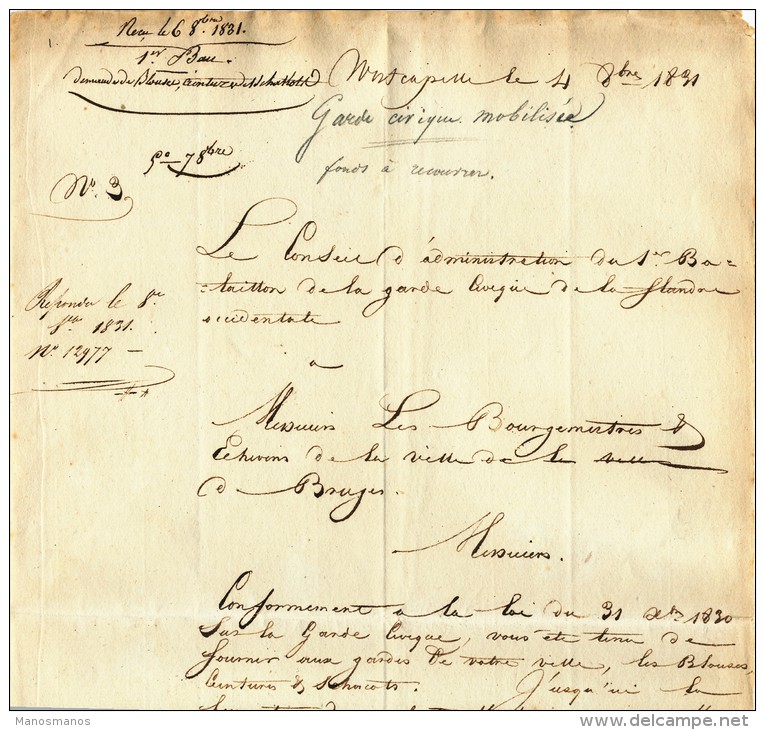 Recu le 6 8bre 1831.
1er Bau
demande de Blouses, ceintures et schakots
Westcapelle le 4 8bre 1831
Garde civique mobilisée
fonds à recouvrer.
5º 7 8bre
Nº. 3
Le Conseil d'administration du 1er Ba=
=taillon de la garde Civique de la flandre
occidentale
Repondu le 8
8bre 1831.
Nº 12977 —
a
Messieurs Les Bourgemestres &
Echevins de la ville de la ville
de Bruges.
Messieurs.
Conformement a la loi du 31 Xbre 1830
Sur la Garde Civique, vous ete tenu de
fournir aux gardes de votre ville, les Blouses,
Ceintures & Schacots. Jusqu'ici la
Manosmanos
delcampe.net